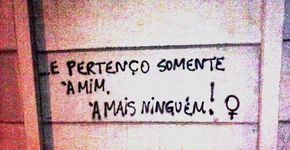 ...E PERTENÇO SOMENTE
"A MIM,
"A MAIS NINGUÉM! ♀